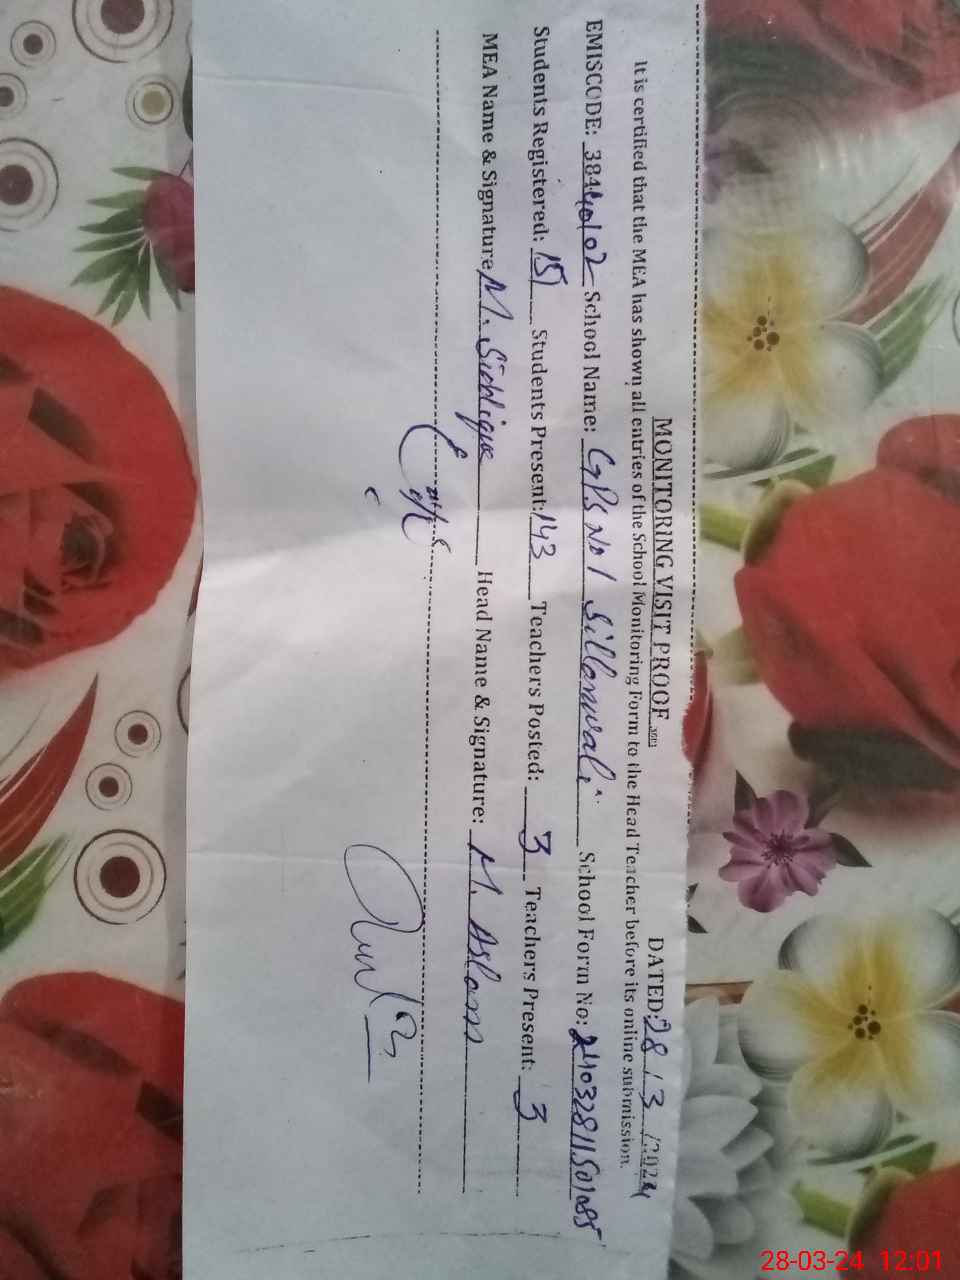 MONITORING VISIT PROOF
DATED: 28/3/2024
It is certified that the MEA has shown all entries of the School Monitoring Form to the Head Teacher before its online submission.
EMISCODE: 38440102 School Name: GPS No 1 Sillanwali School Form No: 24032811501085
Students Registered: 151 Students Present: 143 Teachers Posted: 3 Teachers Present: 3
MEA Name & Signature M. Siddique Head Name & Signature: M. Aslam
28-03-24 12:01